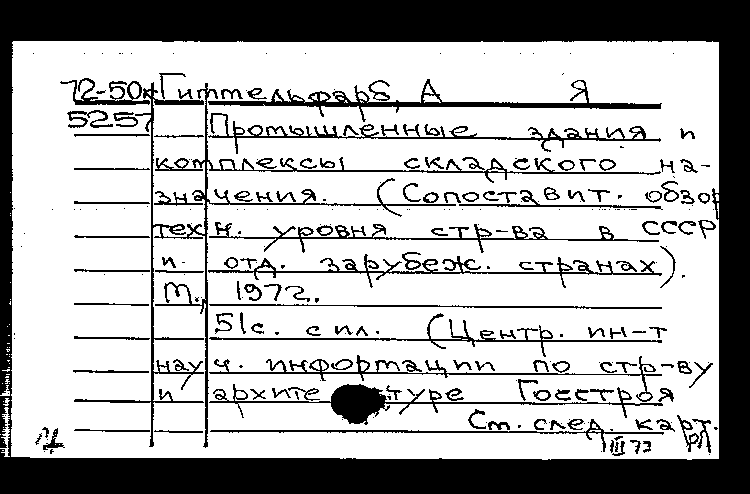 72-50к Гиттельфарб, А Я
5257 Промышленные здания и
комплексы складского на-
значения. (Сопоставит. обзор
техн. уровня стр-ва в СССР
и отд. зарубеж. странах).
М., 1972.
51с. с ил. (Центр. ин-т
науч. информации по стр-ву
и архите туре Госстроя
См. след. карт.
III 73